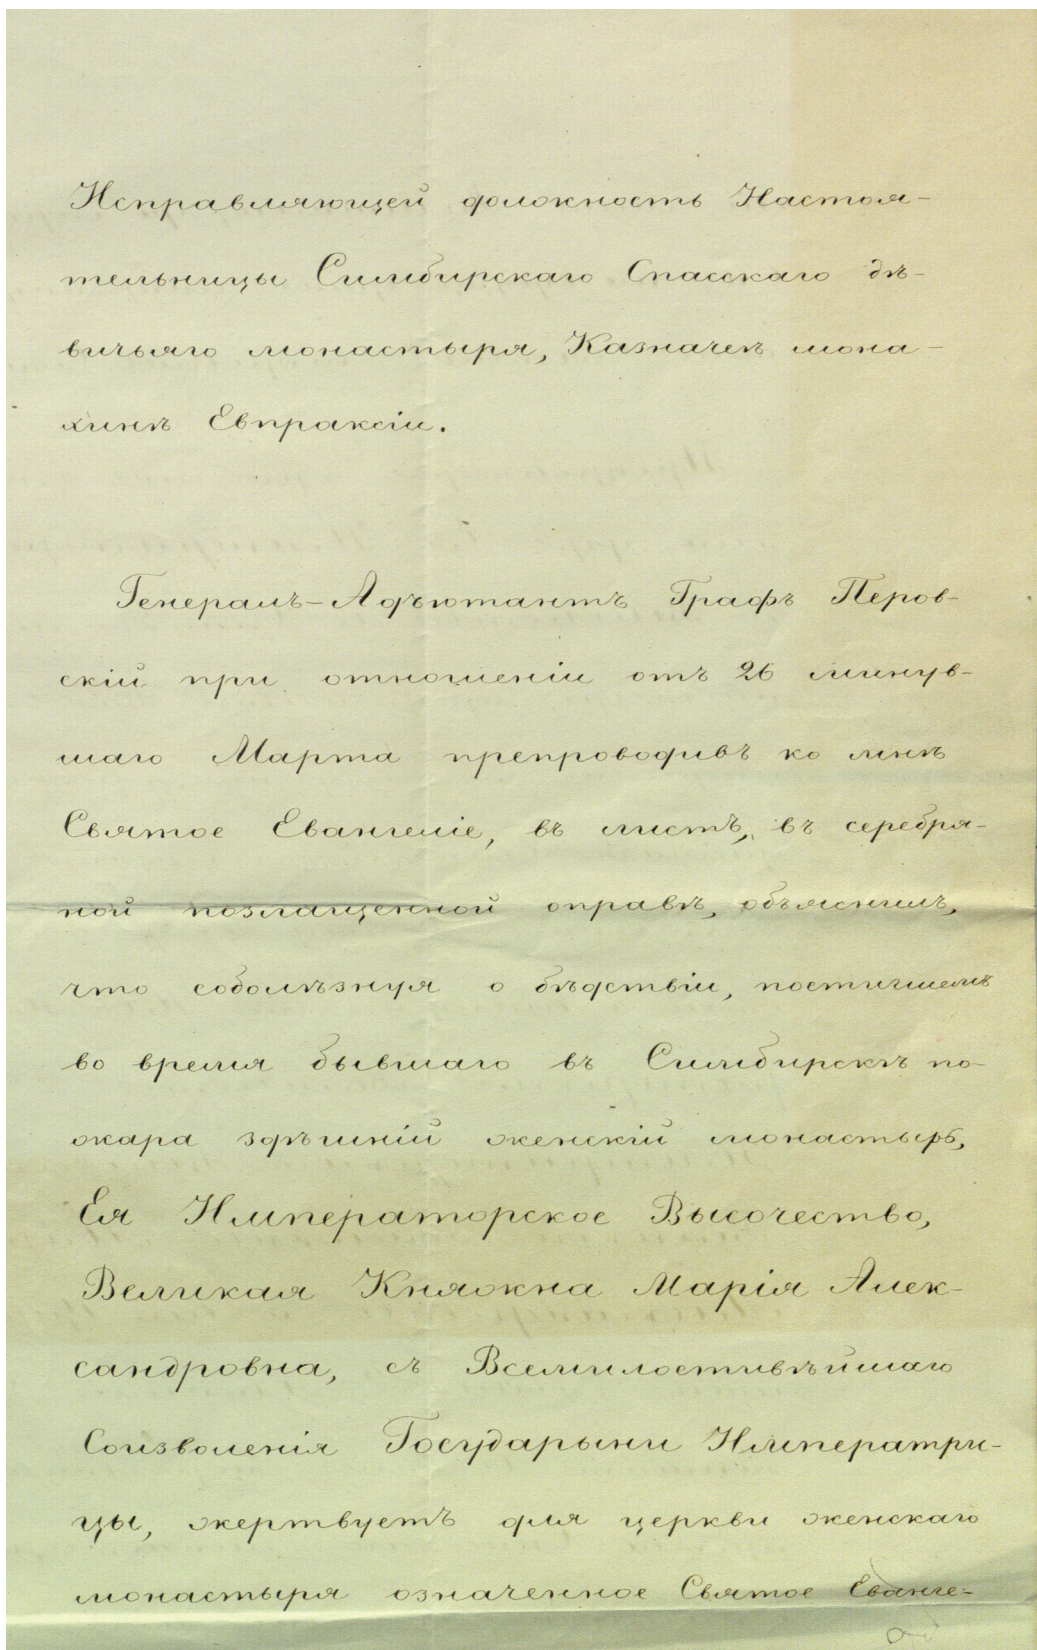 Исправляющей должность Настоя-
тельницы Симбирскаго Спасскаго дѣ-
вичьяго монастыря, Казначеѣ мона-
хинѣ Евпраксіи.
Генералъ-Адъютантъ Графъ Перов-
скій при отношеніи отъ 26 минув-
шаго Марта препроводивъ ко мнѣ
Святое Евангеліе, въ листъ, въ серебря-
ной позлащенной оправѣ, объяснилъ,
что соболѣзнуя о бѣдствіи, постигшемъ
во время бывшаго въ Симбирскѣ по-
жара здѣшній женскій монастырь,
Ея Императорское Высочество,
Великая Княжна Марія Алек-
сандровна, съ Всемилостивѣйшаго
Соизволенія Государыни Императри-
цы, жертвуетъ для церкви женскаго
монастыря означенное Святое Еванге-